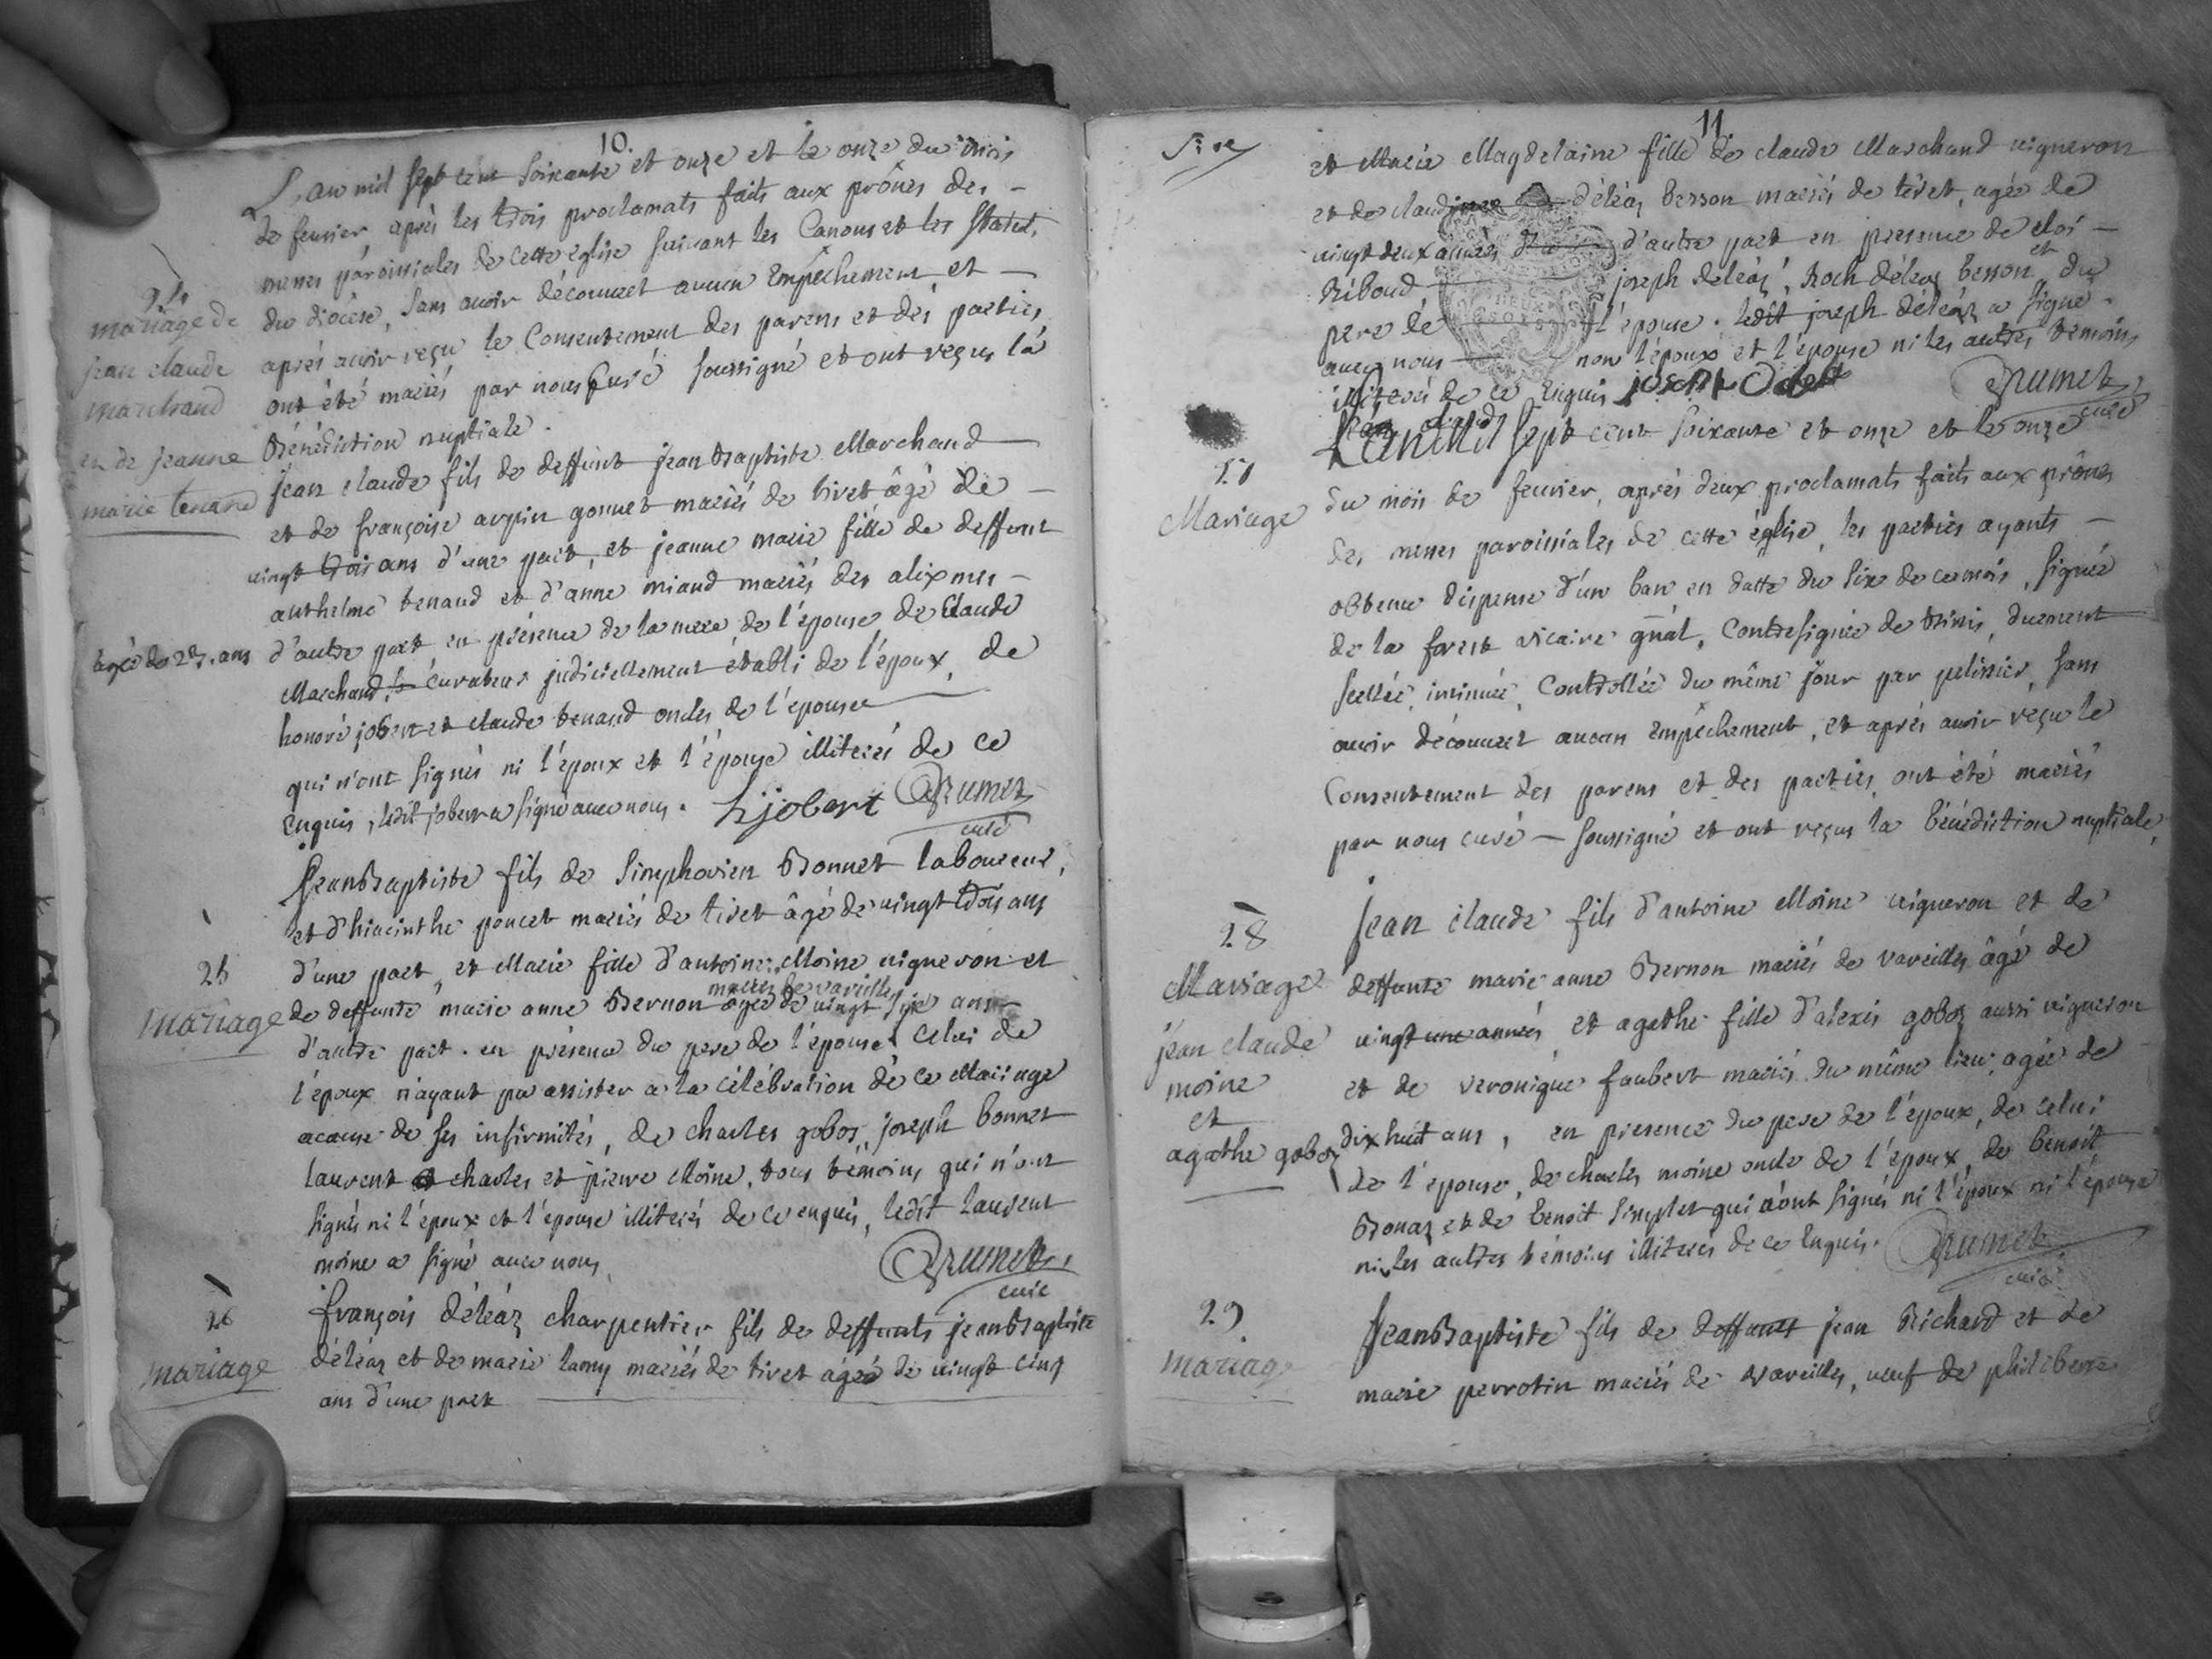 10.
L'an mil sept cent soixante et onze et le onze du mois
de feurier, après les trois proclamats faits aux prônes des -
messes paroissiales de cette eglise suivant les Canons et les Statut,
du diocèse, sans avoir découvert aucun Empêchement et -
après avoir reçu le Consentement des parens et des parties
ont été mariés par nous Curé soussigné et ont reçus la
Bénédiction nuptiale.
mariage de
jean claude
marchand
et de jeanne
marie tenand
jean claude fils de deffunt jean Baptiste Marchand
et de françoise arpin gonnet mariés de tiret âgé de -
vingt trois ans d'une part, et jeanne marie fille de deffunt
anthelme tenand et d'anne miand mariés des alixmes -
agée de 25. ans
d'autre part en présence de la mere de l'épouse de Claude
Marchand, curateur judiciellement établi de l'époux, de
honoré jobert et claude tenand oncles de l'épouse
qui n'ont signés ni l'époux et l'épouse illiterés de ce
enquis, ledit jobert a signé avec nous. hjobert Brumet
curé
25
mariage
Jean Baptiste fils de Simphorien Bonnet laboureur,
et d'hiacinthe poncet mariés de tiret âgé de vingt trois ans
d'une part, et Marie fille d'antoine Moine vigneron et
mariés de vareilles
de deffunte marie anne Bernon agée de vingt six ans
d'autre part. en présence du pere de l'épouse celui de
l'époux n'ayant pu assister a la célébration de ce Mariage
acause de ses infirmités, de charles goboz, joseph bonnet
laurent charles et pierre Moine, tous témoins qui n'ont
signés ni l'époux et l'épouse illiterés de ce enquis, ledit laurent
moine a signé avec nous
Brumet
curé
26
mariage
françois déléaz charpentier fils de deffunts jean Baptiste
déléaz et de marie lamy mariés de tiret âgé de vingt cinq
ans d'une part
11
et Marie Magdelaine fille de claude Marchand vigneron
et de claudine déléaz besson mariés de tiret, agée de
vingt deux années d'autre part en presence de eloi -
Riboud joseph deléaz, Roch déléaz besson et du
pere de l'épouse. ledit joseph déléaz a signé
avec nous non l'époux et l'épouse ni les autres témoins
illiterés de ce Enquis joseph Brumet
curé
27
Mariage
L'an Mil sept cent soixante et onze et le onze
du mois de feurier, après deux proclamats faits aux prônes
des messes paroissiales de cette église, les parties ayants -
obtenu dispense d'un ban en datte du six de ce mois, signée
de la forest vicaire gñal, Contresignée de Brinis, duement
scellée, insinuée, Controllée du même jour par pelissier, sans
avoir découvert aucun empêchement, et après avoir reçu le
Consentement des parens et des parties ont été mariés
par nous curé - soussigné et ont reçus la bénédiction nuptiale,
28
Mariage
jean claude
moine
et
agathe goboz
Jean claude fils d'antoine Moine vigneron et de
deffunte marie anne Bernon mariés de vareilles âgé de
vingt une années et agathe fille d'alexis goboz aussi vigneron
et de veronique faubert mariés du même lieu, agée de
dix huit ans, en presence du pere de l'époux, de celui
de l'épouse, de charles moine oncle de l'époux, de benoit
Bonaz et de benoit Simplet qui n'ont signés ni l'époux ni l'épouse
ni les autres témoins illiterés de ce Enquis. Brumet
curé
29.
mariage
Jean Baptiste fils de deffunt jean Richard et de
marie perrotin mariés de vareilles, veuf de philiberte